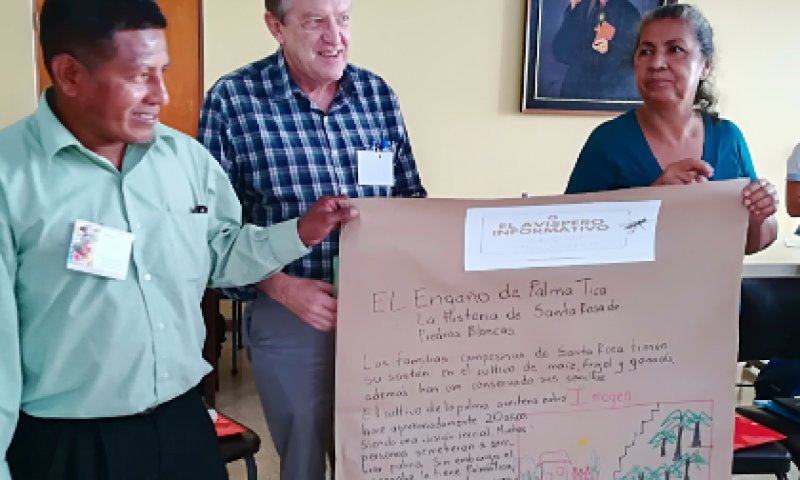 EL AVISPERO
INFORMATIVO
EL Engaño de Palma Tica
La Historia de Santa Rosa de
Piedras Blancas
Las familias campesinas de Santa Rosa tienen
su sostén en el cultivo de maíz, frijol y ganado
además han con conservado sus semillas
El cultivo de la palma aceitera entro
Imagen
hace aproximadamente 20 años
siendo una ilusión inicial. Muchas
personas se metieron a sem
brar palma. Sin embargo el
la tiene Palmatica,